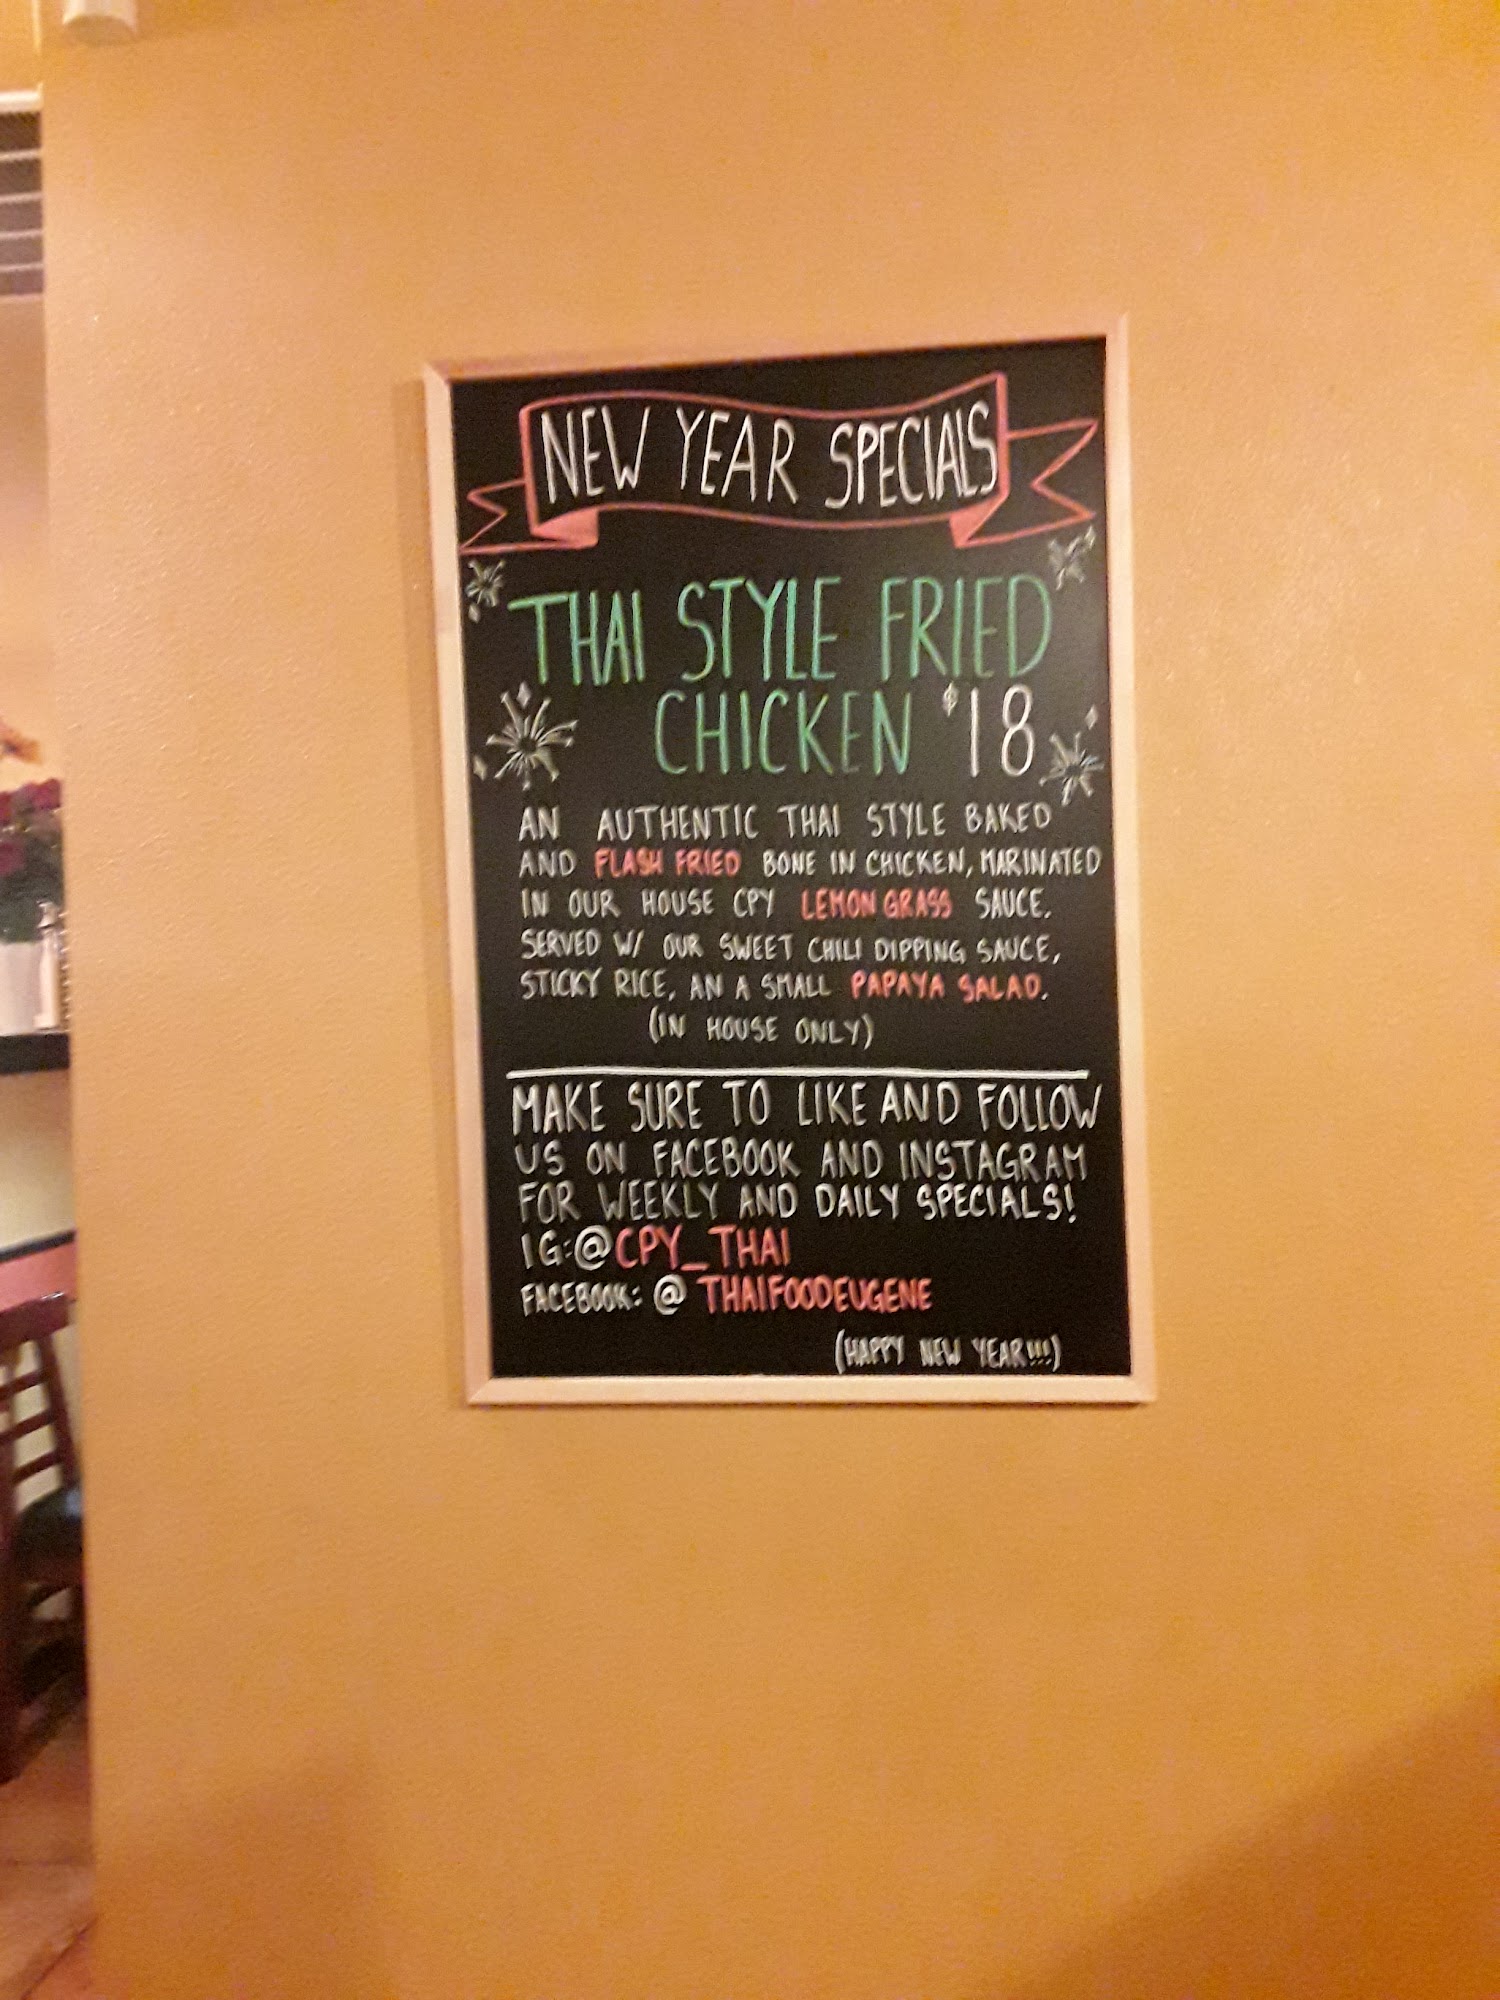 NEW YEAR SPECIALS
THAI STYLE FRIED
CHICKEN $18
AN AUTHENTIC THAI STYLE BAKED
AND FLASH FRIED BONE IN CHICKEN, MARINATED
IN OUR HOUSE CPY LEMON GRASS SAUCE.
SERVED W/ OUR SWEET CHILI DIPPING SAUCE,
STICKY RICE, AN A SMALL PAPAYA SALAD.
(IN HOUSE ONLY)
MAKE SURE TO LIKE AND FOLLOW
US ON FACEBOOK AND INSTAGRAM
FOR WEEKLY AND DAILY SPECIALS!
IG:@CPY_THAI
FACEBOOK: @ THAIFOODEUGENE
(HAPPY NEW YEAR!!!)